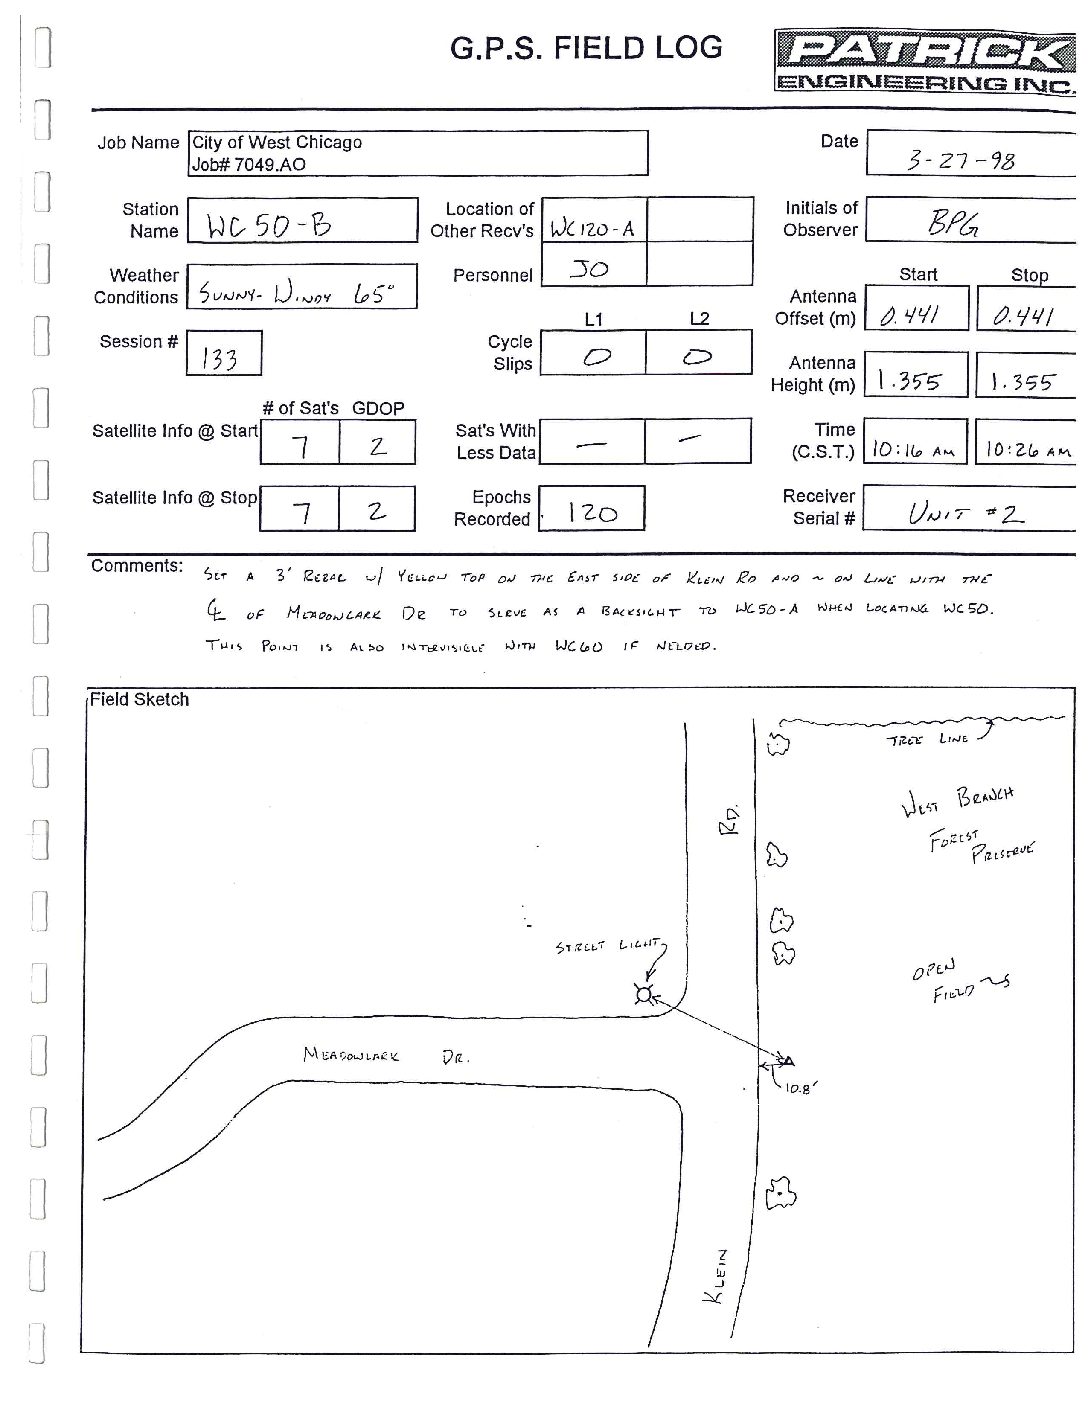 G.P.S. FIELD LOG
PATRICK
ENGINEERING INC.
Job Name
City of West Chicago
Job# 7049.AO
Date
3-27-98
Station
Name
WC 50-B
Location of
Other Recv's
WC120-A
Initials of
Observer
BPG
Weather
Conditions
SUNNY- WINDY 65°
Personnel
JO
Start Stop
Antenna
Offset (m)
0.441 0.441
Session #
133
L1 L2
Cycle
Slips
0 0
Antenna
Height (m)
1.355 1.355
# of Sat's GDOP
Satellite Info @ Start
7 2
Sat's With
Less Data
— —
Time
(C.S.T.)
10:16 AM 10:26 AM
Satellite Info @ Stop
7 2
Epochs
Recorded
120
Receiver
Serial #
UNIT #2
Comments:
SET A 3' REBAR W/ YELLOW TOP ON THE EAST SIDE OF KLEIN RD AND ~ ON LINE WITH THE
℄ OF MEADOWLARK DR TO SERVE AS A BACKSIGHT TO WC50-A WHEN LOCATING WC50.
THIS POINT IS ALSO INTERVISIBLE WITH WC60 IF NEEDED.
Field Sketch
TREE LINE
WEST BRANCH
FOREST
PRESERVE
RD.
STREET LIGHT
OPEN
FIELD
MEADOWLARK DR.
10.8'
KLEIN